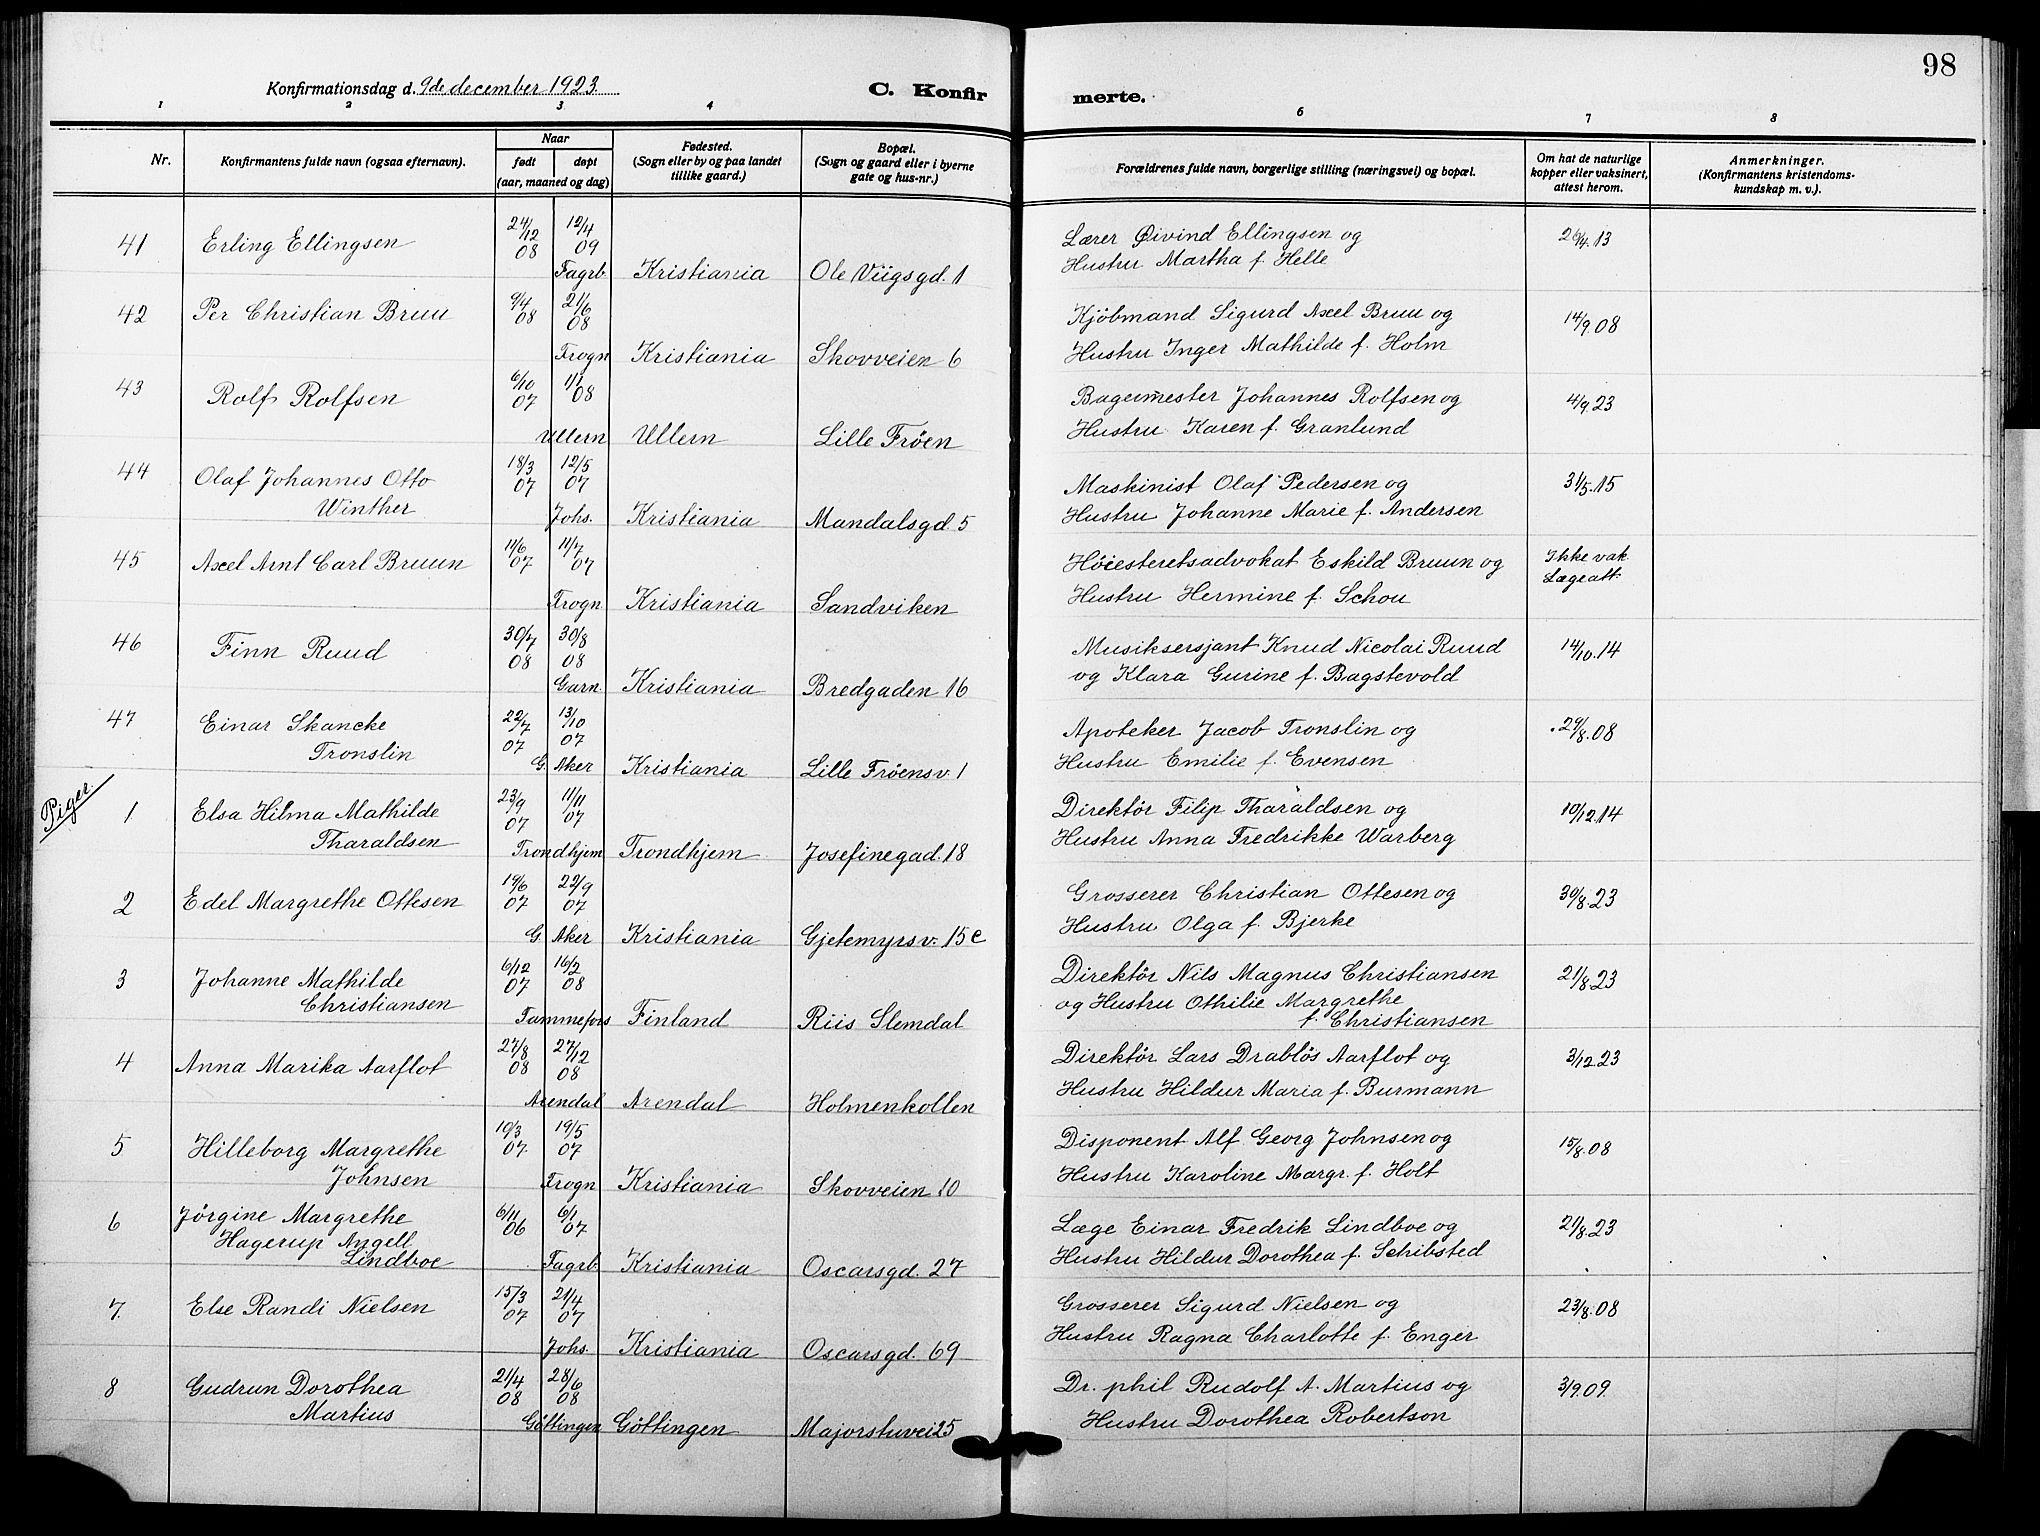 98
Konfirmationsdag d. 9de december 1923.
C. Konfirmerte.
1 2 3 4 6 7 8
Nr.
Konfirmantens fulde navn (ogsaa efternavn).
Naar
født døpt
(aar, maaned og dag)
Fødested.
(Sogn eller by og paa landet
tillike gaard.)
Bopæl.
(Sogn og gaard eller i byerne
gate og hus-nr.)
Forældrenes fulde navn, borgerlige stilling (næringsvei) og bopæl.
Om hat de naturlige
kopper eller vaksinert,
attest herom.
Anmerkninger.
(Konfirmantens kristendoms-
kundskap m. v.).
41 Erling Ellingsen 24/12 08 12/4 09 Lærer Øivind Ellingsen og 26/4.13
Fagrb. Kristiania Ole Viigsgd. 1 Hustru Martha f. Helle
42 Per Christian Bruu 9/4 08 21/6 08 Kjöbmand Sigurd Axel Bruu og 14/9.08
Frogn Kristiania Skovveien 6 Hustru Inger Mathilde f. Holm
43 Rolf Rolfsen 6/10 07 1/1 08 Bagermester Johannes Rolfsen og 4/9.23
Ullern Ullern Lille Fröen Hustru Karen f. Granlund
44 Olaf Johannes Otto 18/3 07 12/5 07 Maskinist Olaf Pedersen og 31/5.15
Winther Johs. Kristiania Mandalsgd. 5 Hustru Johanne Marie f. Andersen
45 Axel Arnt Carl Bruun 11/6 07 11/7 07 Höiesteretsadvokat Eskild Bruun og Ikke vak.
Lægeatt.
Frogn Kristiania Sandviken Hustru Hermine f. Schou
46 Finn Ruud 30/7 08 30/8 08 Musiksersjant Knud Nicolai Ruud 14/10.14
Garn. Kristiania Bredgaden 16 og Klara Gurine f. Bagstevold
47 Einar Skancke 22/7 07 13/10 07 Apoteker Jacob Tronslin og 29/8.08
Tronslin G. Aker Kristiania Lille Fröensv. 1 Hustru Emilie f. Evensen
Piger
1 Elsa Hilma Mathilde 23/9 07 11/11 07 Direktör Filip Tharaldsen og 10/12.14
Tharaldsen Trondhjem Trondhjem Josefinegad. 18 Hustru Anna Fredrikke Warberg
2 Edel Margrethe Ottesen 19/6 07 22/9 07 Grosserer Christian Ottesen og 30/8.23
G. Aker Kristiania Gjetemyrsv. 15c Hustru Olga f. Bjerke
3 Johanne Mathilde 6/12 07 16/2 08 Direktör Nils Magnus Christiansen 21/8.23
Christiansen og Hustru Othilie Margrethe
Tammefors Finland Riis Slemdal f. Christiansen
4 Anna Marika Aarflot 27/8 08 27/12 08 Direktör Lars Drablös Aarflot og 3/12.23
Arendal Arendal Holmenkollen Hustru Hildur Maria f. Burmann
5 Hilleborg Margrethe 10/3 07. 19/5 07 Disponent Alf Georg Johnsen og 15/8.08
Johnsen Frogn Kristiania Skovveien 10 Hustru Karoline Margr. f. Holt
6 Jörgine Margrethe 6/11 06 6/1 07 Læge Einar Fredrik Lindboe og 21/8.23
Hagerup Angell
Lindboe Fagrb. Kristiania Oscarsgd. 27 Hustru Hildur Dorothea f. Schibsted
7. Else Randi Nielsen 15/3 07 21/4 07 Grosserer Sigurd Nielsen og 23/8.08
Johs. Kristiania Oscarsgd. 69 Hustru Ragna Charlotte f. Enger
8 Gudrun Dorothea 21/4 08 28/6 08 Dr. phil Rudolf A. Martius og 3/9.09.
Martius Göttingen Göttingen Majorstuvei 25 Hustru Dorothea Robertson